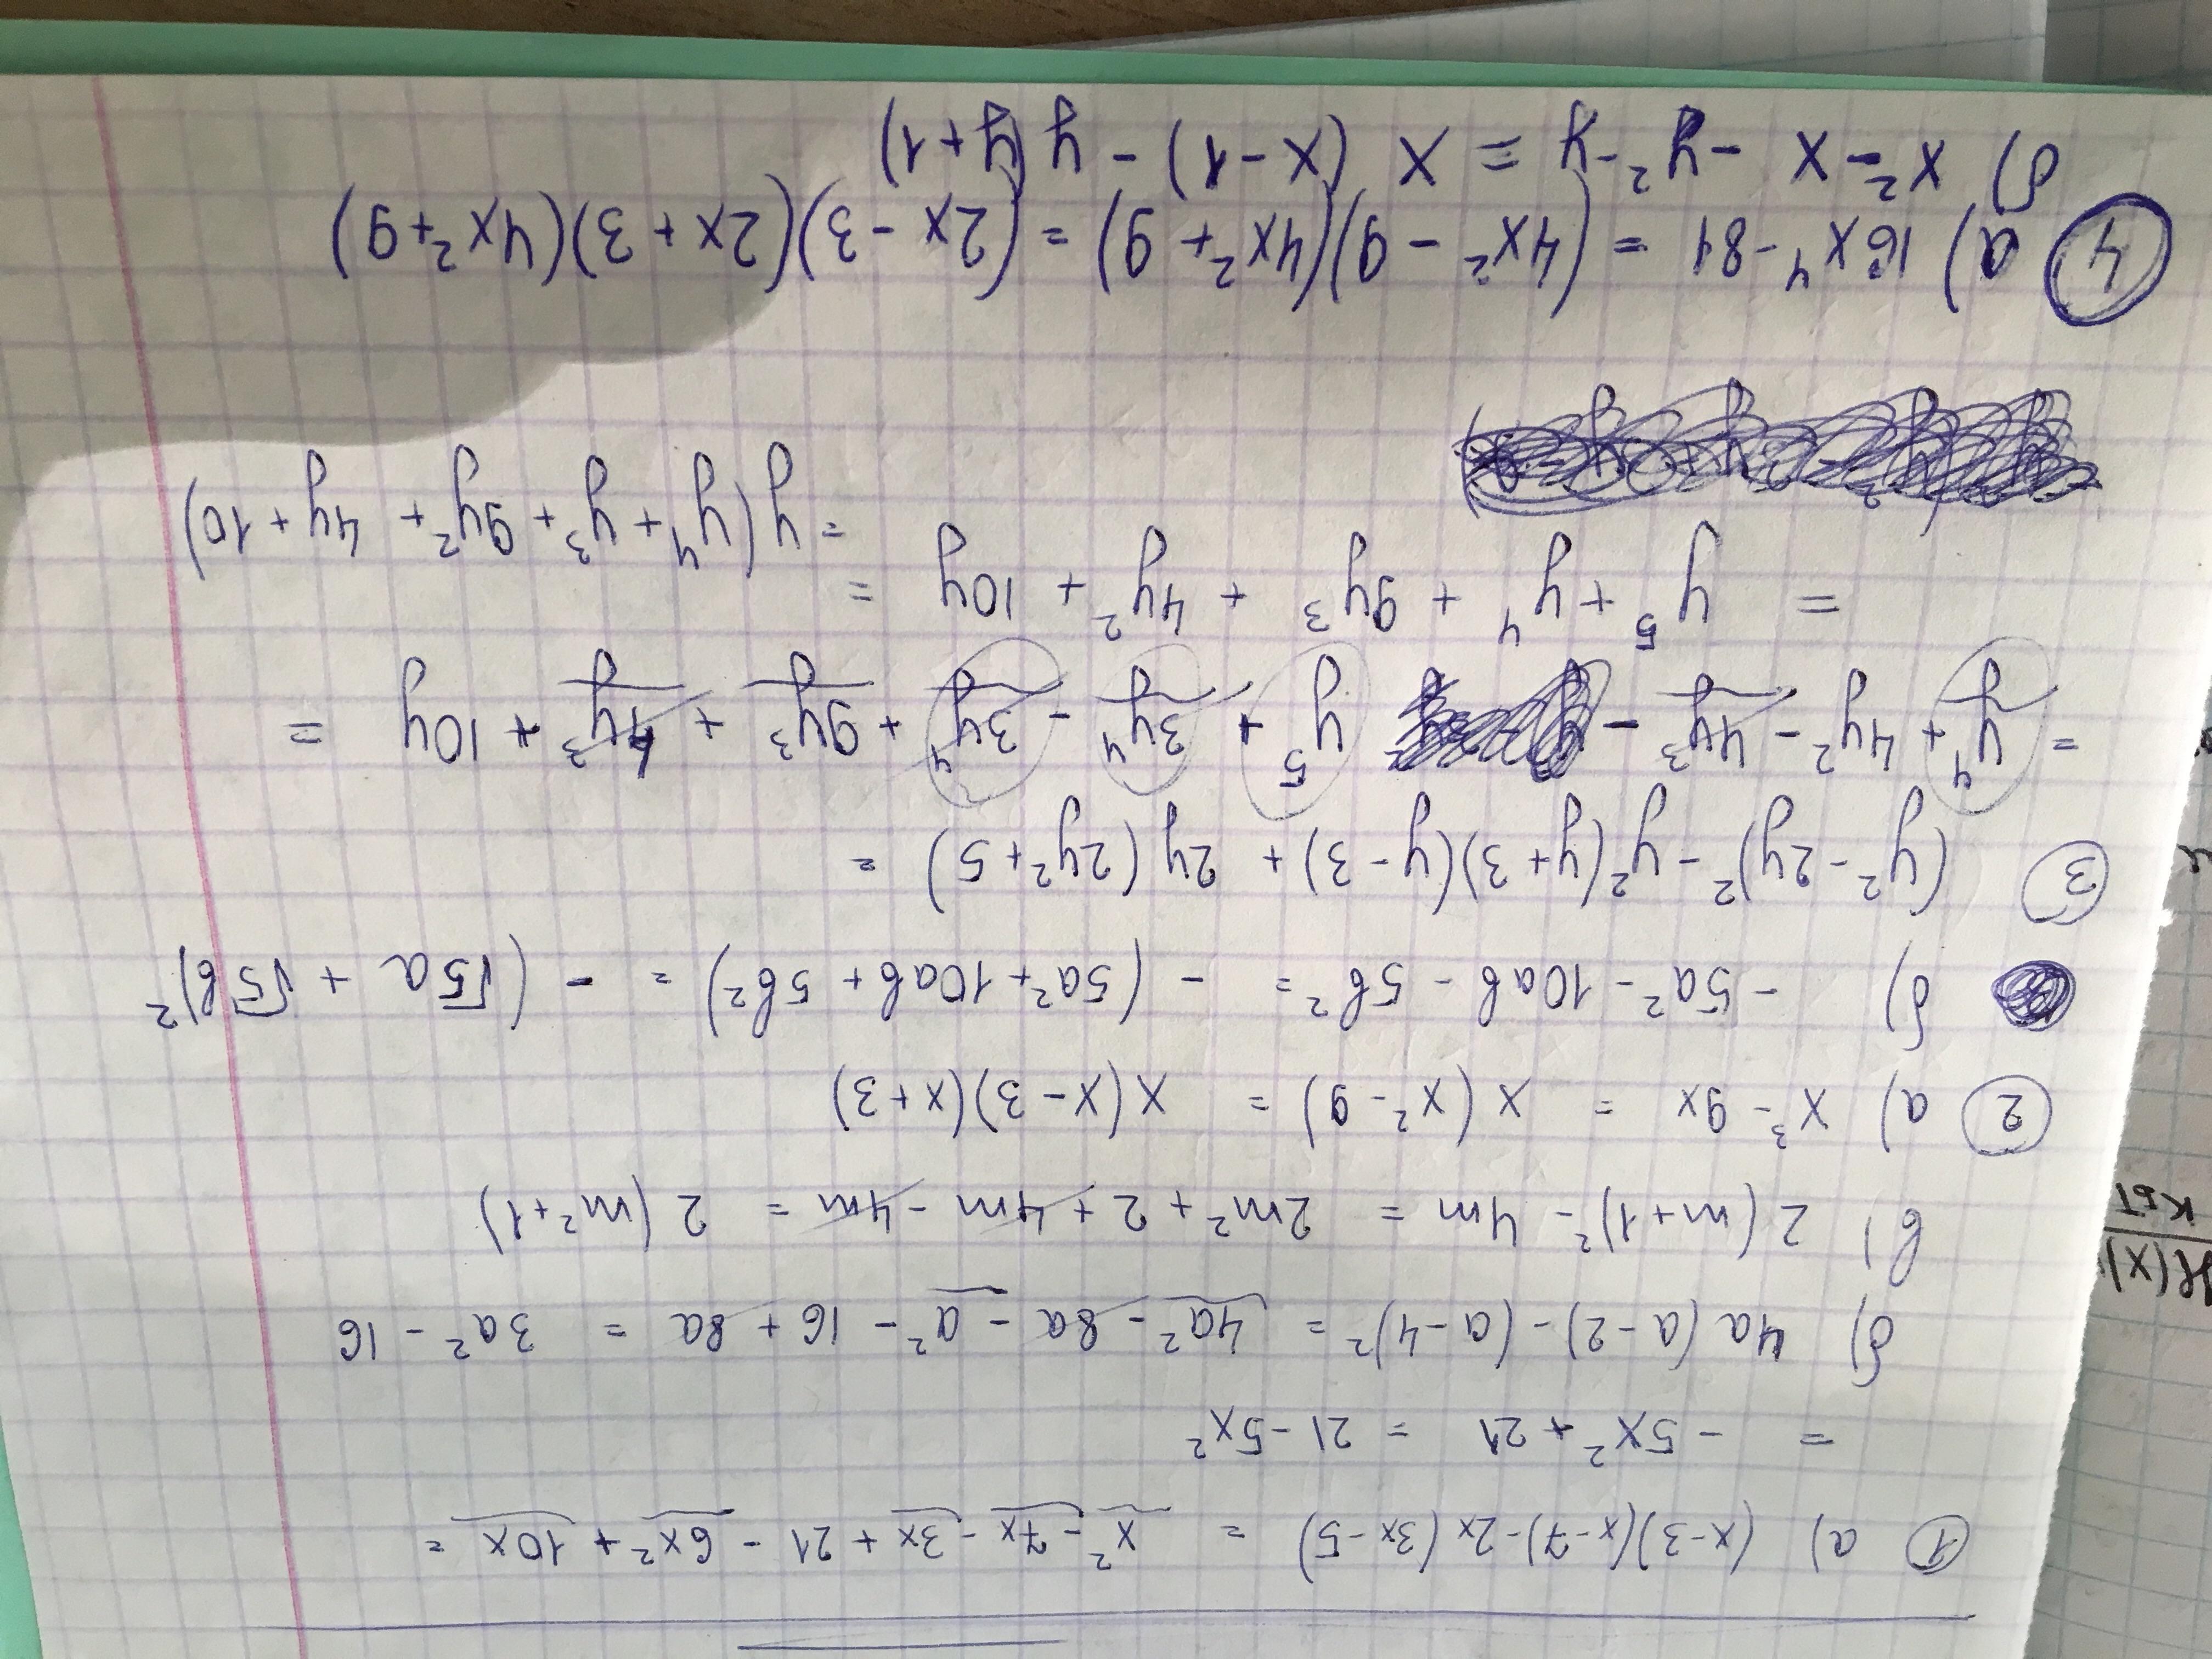 ① а) (x-3)(x-7)-2x(3x-5) = x²-7x-3x+21-6x²+10x =
= -5x²+21 = 21-5x²
б) 4a(a-2)-(a-4)² = 4a²-8a-a²-16+8a = 3a²-16
в) 2(m+1)²-4m = 2m²+2+4m-4m = 2(m²+1)
② а) x³-9x = x(x²-9) = x(x-3)(x+3)
б) -5a²-10ab-5b² = -(5a²+10ab+5b²) = -(√5a+√5b)²
③ (y²-2y)²-y²(y+3)(y-3)+2y(2y²+5) =
= y⁴+4y²-4y³- y⁵+3y⁴-3y⁴+9y³+4y³+10y =
= y⁵+y⁴+9y³+4y²+10y =
= y(y⁴+y³+9y²+4y+10)
④ а) 16x⁴-81 = (4x²-9)(4x²+9) = (2x-3)(2x+3)(4x²+9)
б) x²-x-y²-y = x(x-1)-y(y+1)
H(x)
КБТ